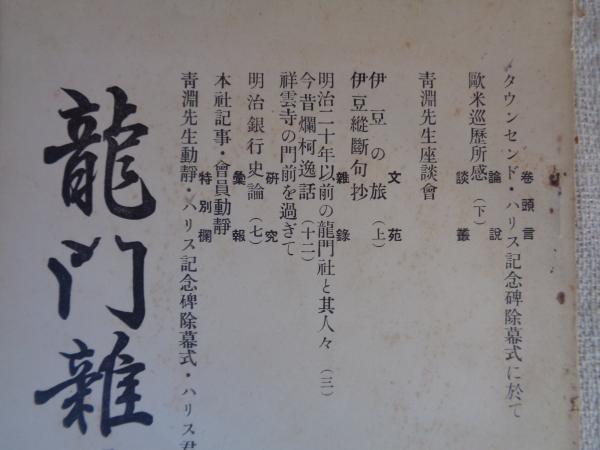 卷頭言
タウンセンド・ハリス記念碑除幕式に於て
論說
歐米巡歷所感（下）
談叢
靑淵先生座談會
文苑
伊豆の旅（上）
伊豆縱斷句抄
雜錄
明治二十年以前の龍門社と其人々（三）
今昔爛柯逸話（十二）
祥雲寺の門前を過ぎて
硏究
明治銀行史論（七）
彙報
本社記事・會員動靜
特別欄
靑淵先生動靜・ハリス記念碑除幕式・ハリス君
龍門雜